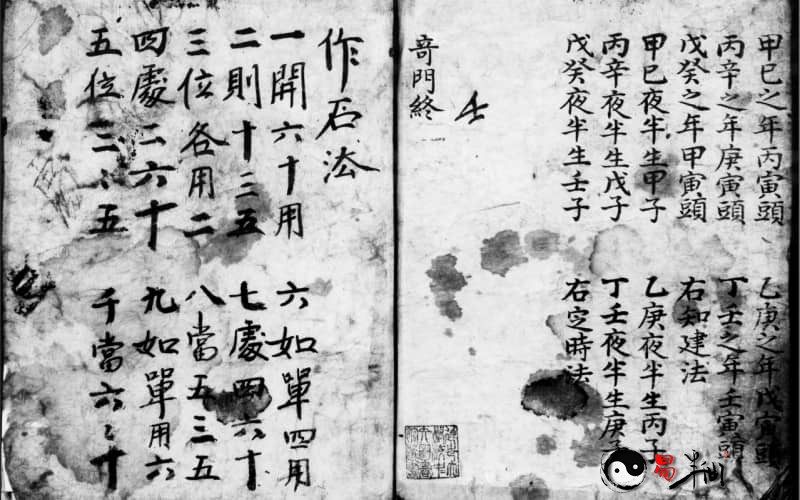 甲已之年丙寅頭 乙庚之年戊寅頭
丙辛之年庚寅頭 丁壬之年壬寅頭
戊癸之年甲寅頭 右知建法
甲已夜半生甲子 乙庚夜半生丙子
丙辛夜半生戊子 丁壬夜半生庚子
戊癸夜半生壬子 右定時法
奇門終
作石法
一開六十用 六如單四用
二則十三五 七處四六十
三位各用二 八當五三五
四處二六十 九如單用六
五位三〻五 千當六〻十
易半仙